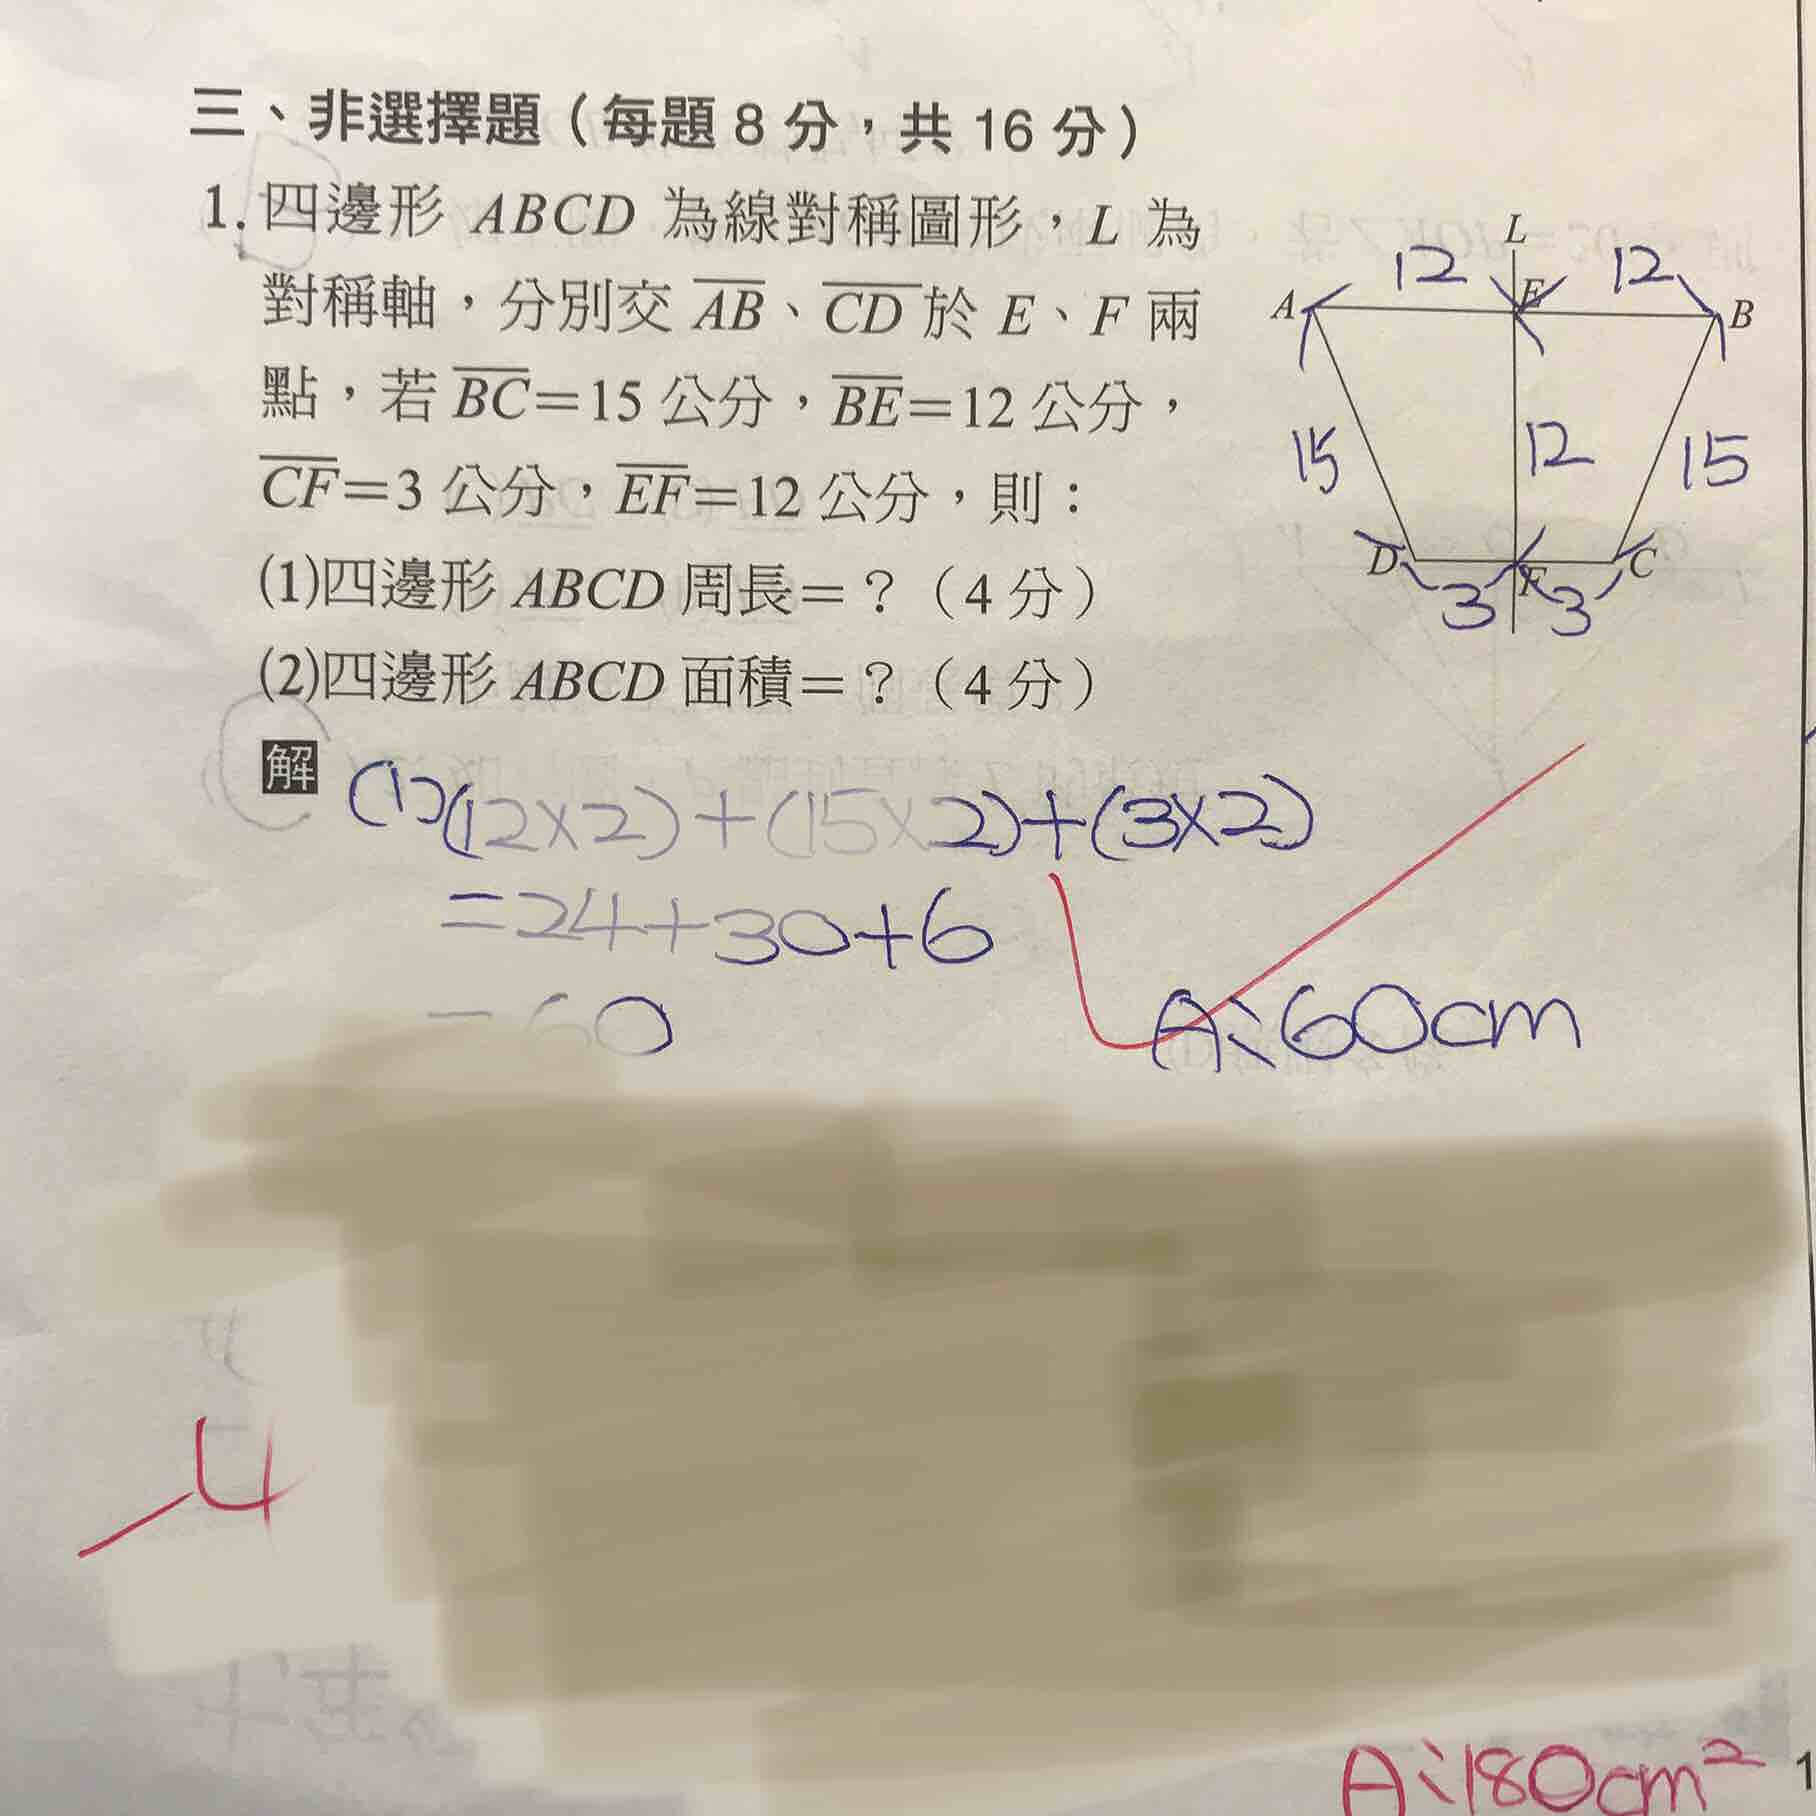 三、非選擇題（每題 8 分，共 16 分）
1. 四邊形 ABCD 為線對稱圖形，L 為
對稱軸，分別交 AB、CD 於 E、F 兩
點，若 BC=15 公分，BE=12 公分，
CF=3 公分，EF=12 公分，則：
(1)四邊形 ABCD 周長=？（4 分）
(2)四邊形 ABCD 面積=？（4 分）
L
12 12
A E B
15 12 15
D F C
3 3
解 (1)(12×2)+(15×2)+(3×2)
=24+30+6
=60 A:60cm
-4
A:180cm²
1